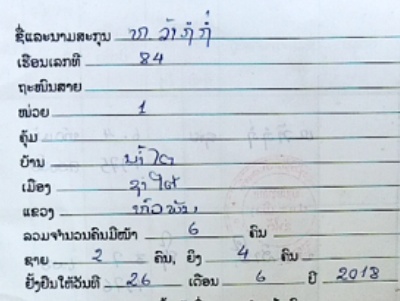 ຊື່ແລະນາມສະກຸນ ທ ວ້າ
ເຮືອນເລກທີ 84
ຖະໜົນສາຍ
ໜ່ວຍ 1
ຄຸ້ມ
ບ້ານ
ເມືອງ ຊຳໃຕ້
ແຂວງ ຫົວພັນ
ລວມຈຳນວນຄົນມີໜ້າ 6 ຄົນ
ຊາຍ 2 ຄົນ, ຍິງ 4 ຄົນ
ຢັ້ງຢືນໃຫ້ວັນທີ 26 ເດືອນ 6 ປີ 2018